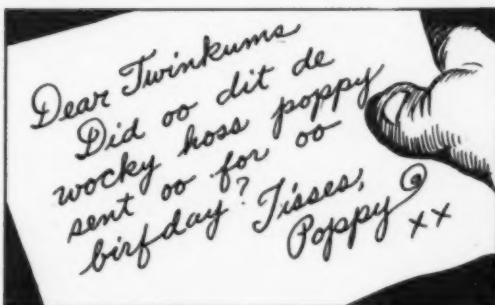 Dear Twinkums
Did oo dit de
wocky hoss poppy
sent oo for oo
birfday? Tisses,
Poppy xx